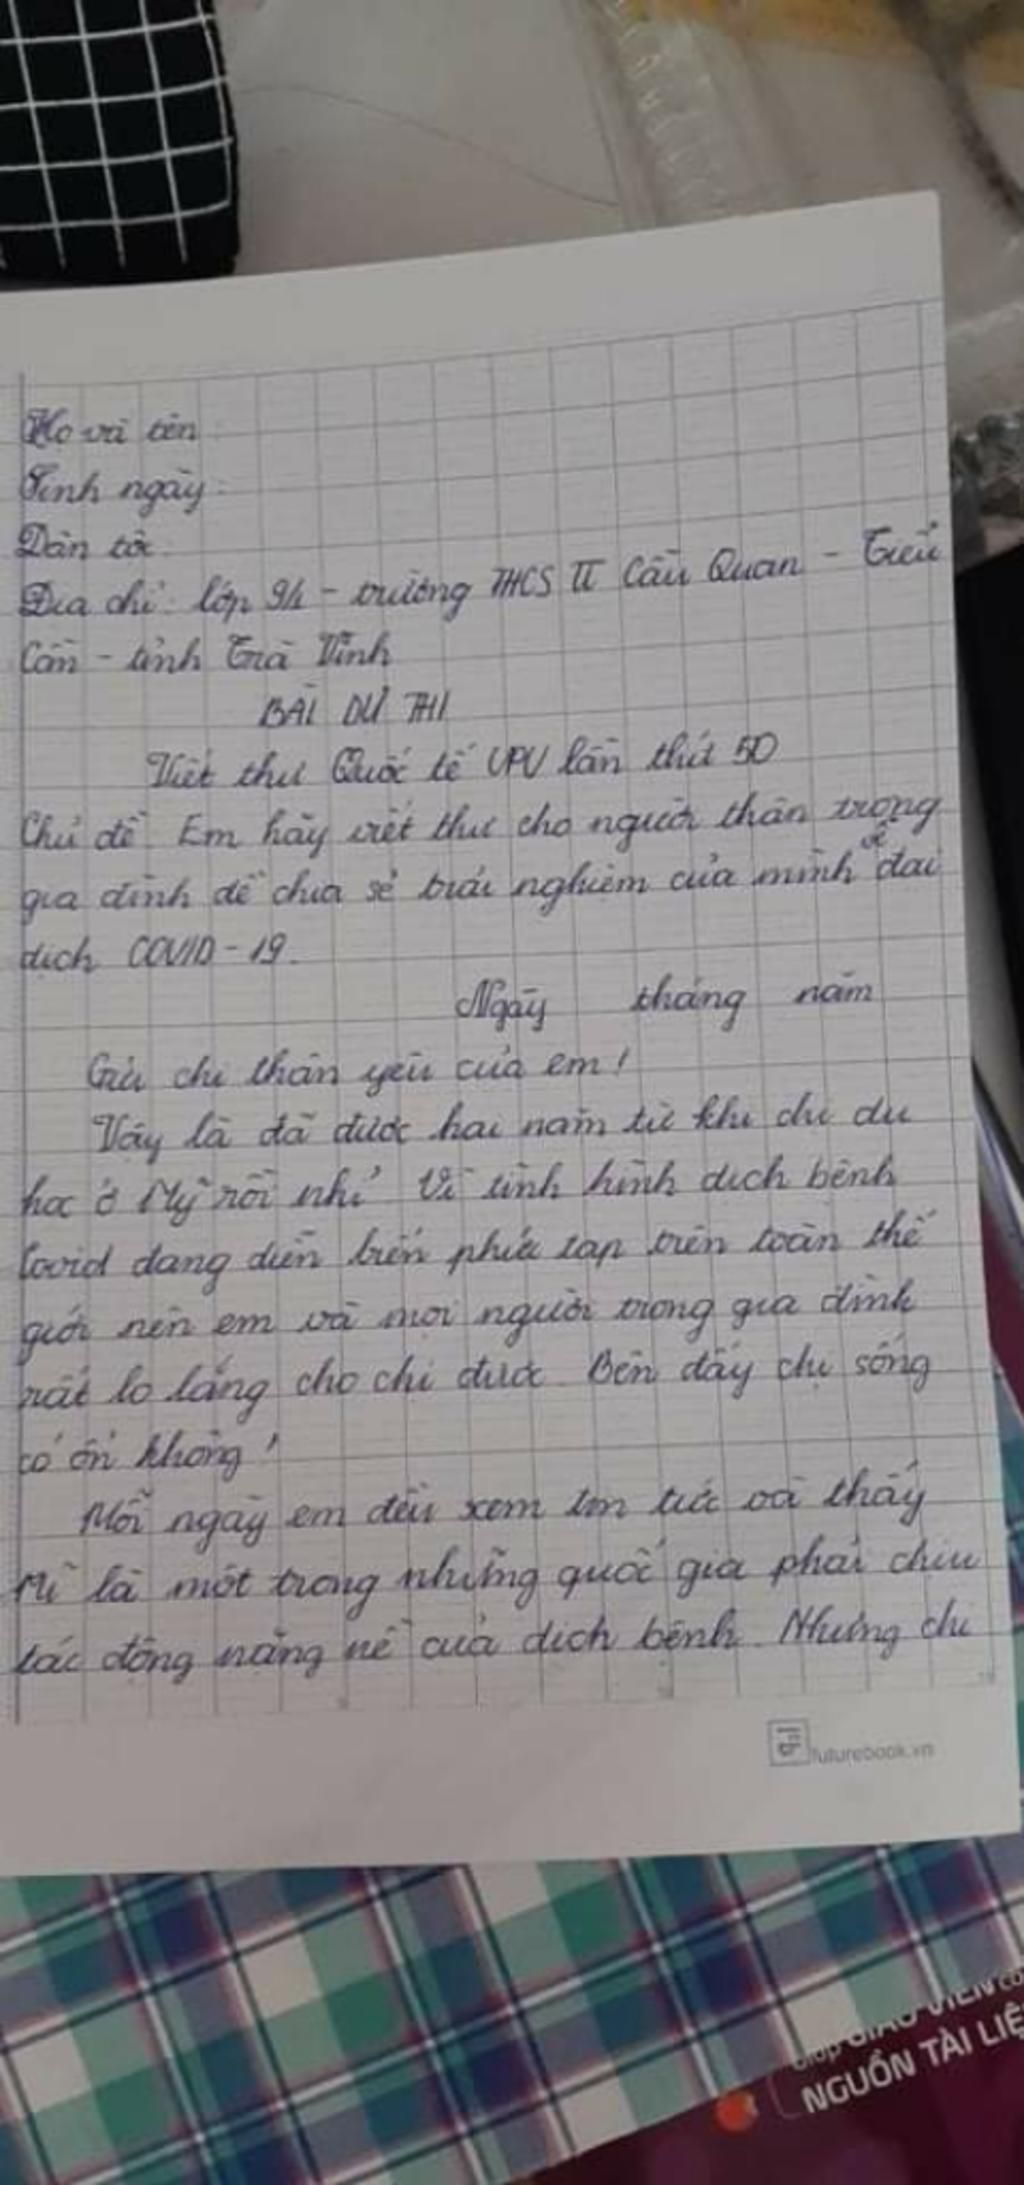 Họ và tên:
Sinh ngày:
Dân tộc:
Địa chỉ: lớp 9/1 - trường THCS II Cầu Quan - Tiểu
Cần - tỉnh Trà Vinh
BÀI DỰ THI
Viết thư Quốc tế UPU lần thứ 50
Chủ đề: Em hãy viết thư cho người thân trong
gia đình để chia sẻ trải nghiệm của mình về đại
dịch COVID-19.
Ngày tháng năm
Gửi chị thân yêu của em!
Vậy là đã được hai năm từ khi chị du
học ở Mỹ rồi nhỉ? Vì tình hình dịch bệnh
Covid đang diễn biến phức tạp trên toàn thế
giới nên em và mọi người trong gia đình
rất lo lắng cho chị được. Bên đấy chị sống
có ổn không!
Mỗi ngày em đều xem tin tức và thấy
Mĩ là một trong những quốc gia phải chịu
tác động nặng nề của dịch bệnh. Nhưng chị
futurebook.vn
Giúp GIÁO VIÊN có
NGUỒN TÀI LIỆ